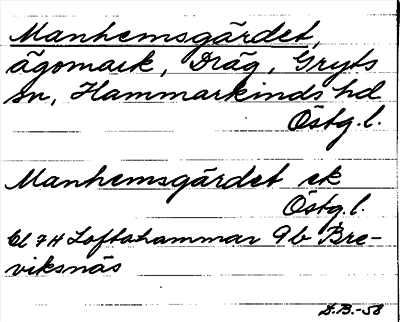 Manhemsgärdet,
ägomark, Dräg, Gryts
sn, Hammarkinds hd
Östg.l.
Manhemsgärdet ek
Östg.l.
bl 7H Loftahammar 9b Bre-
viksnäs
D.B.-58